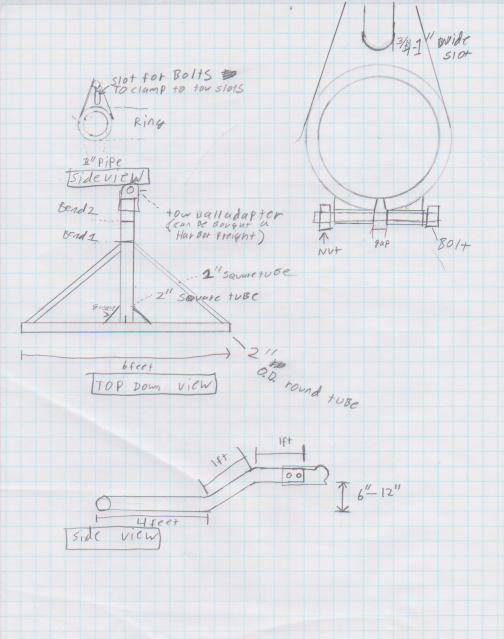 slot for Bolts
TO clamp to tow slots
Ring
3/4-1" wide
slot
pipe
side view
Bend 2
Bend 1
tow ball adapter
(can be bought a
Harbor freight)
Nut
gap
Bolt
1" square tube
2" square tube
Gusset
6 feet
2"
O.D. round tube
TOP Down view
1ft
1ft
6"-12"
4 feet
side view